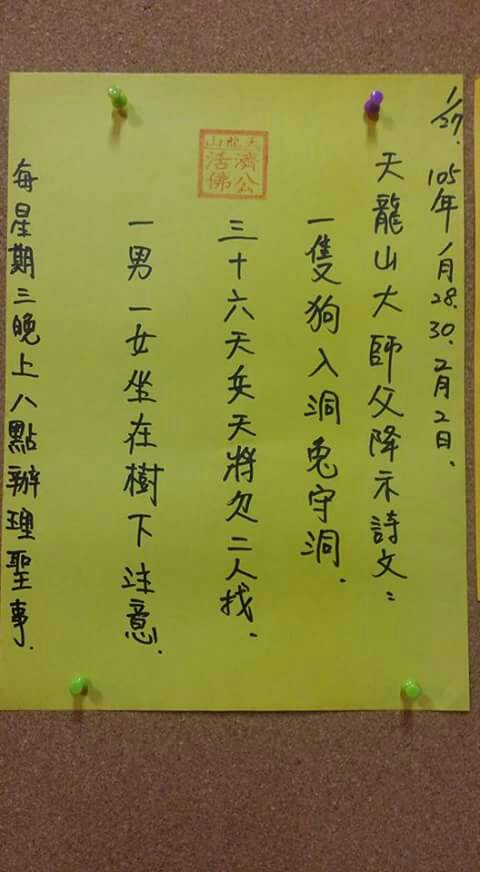 1/27. 105年1月28.30.2月2日.
天龍山大師父降示詩文:
一隻狗入洞兔守洞.
三十六天兵天將欠二人找.
一男一女坐在樹下注意.
每星期三晚上八點辦理聖事.
天龍山
濟公
活佛